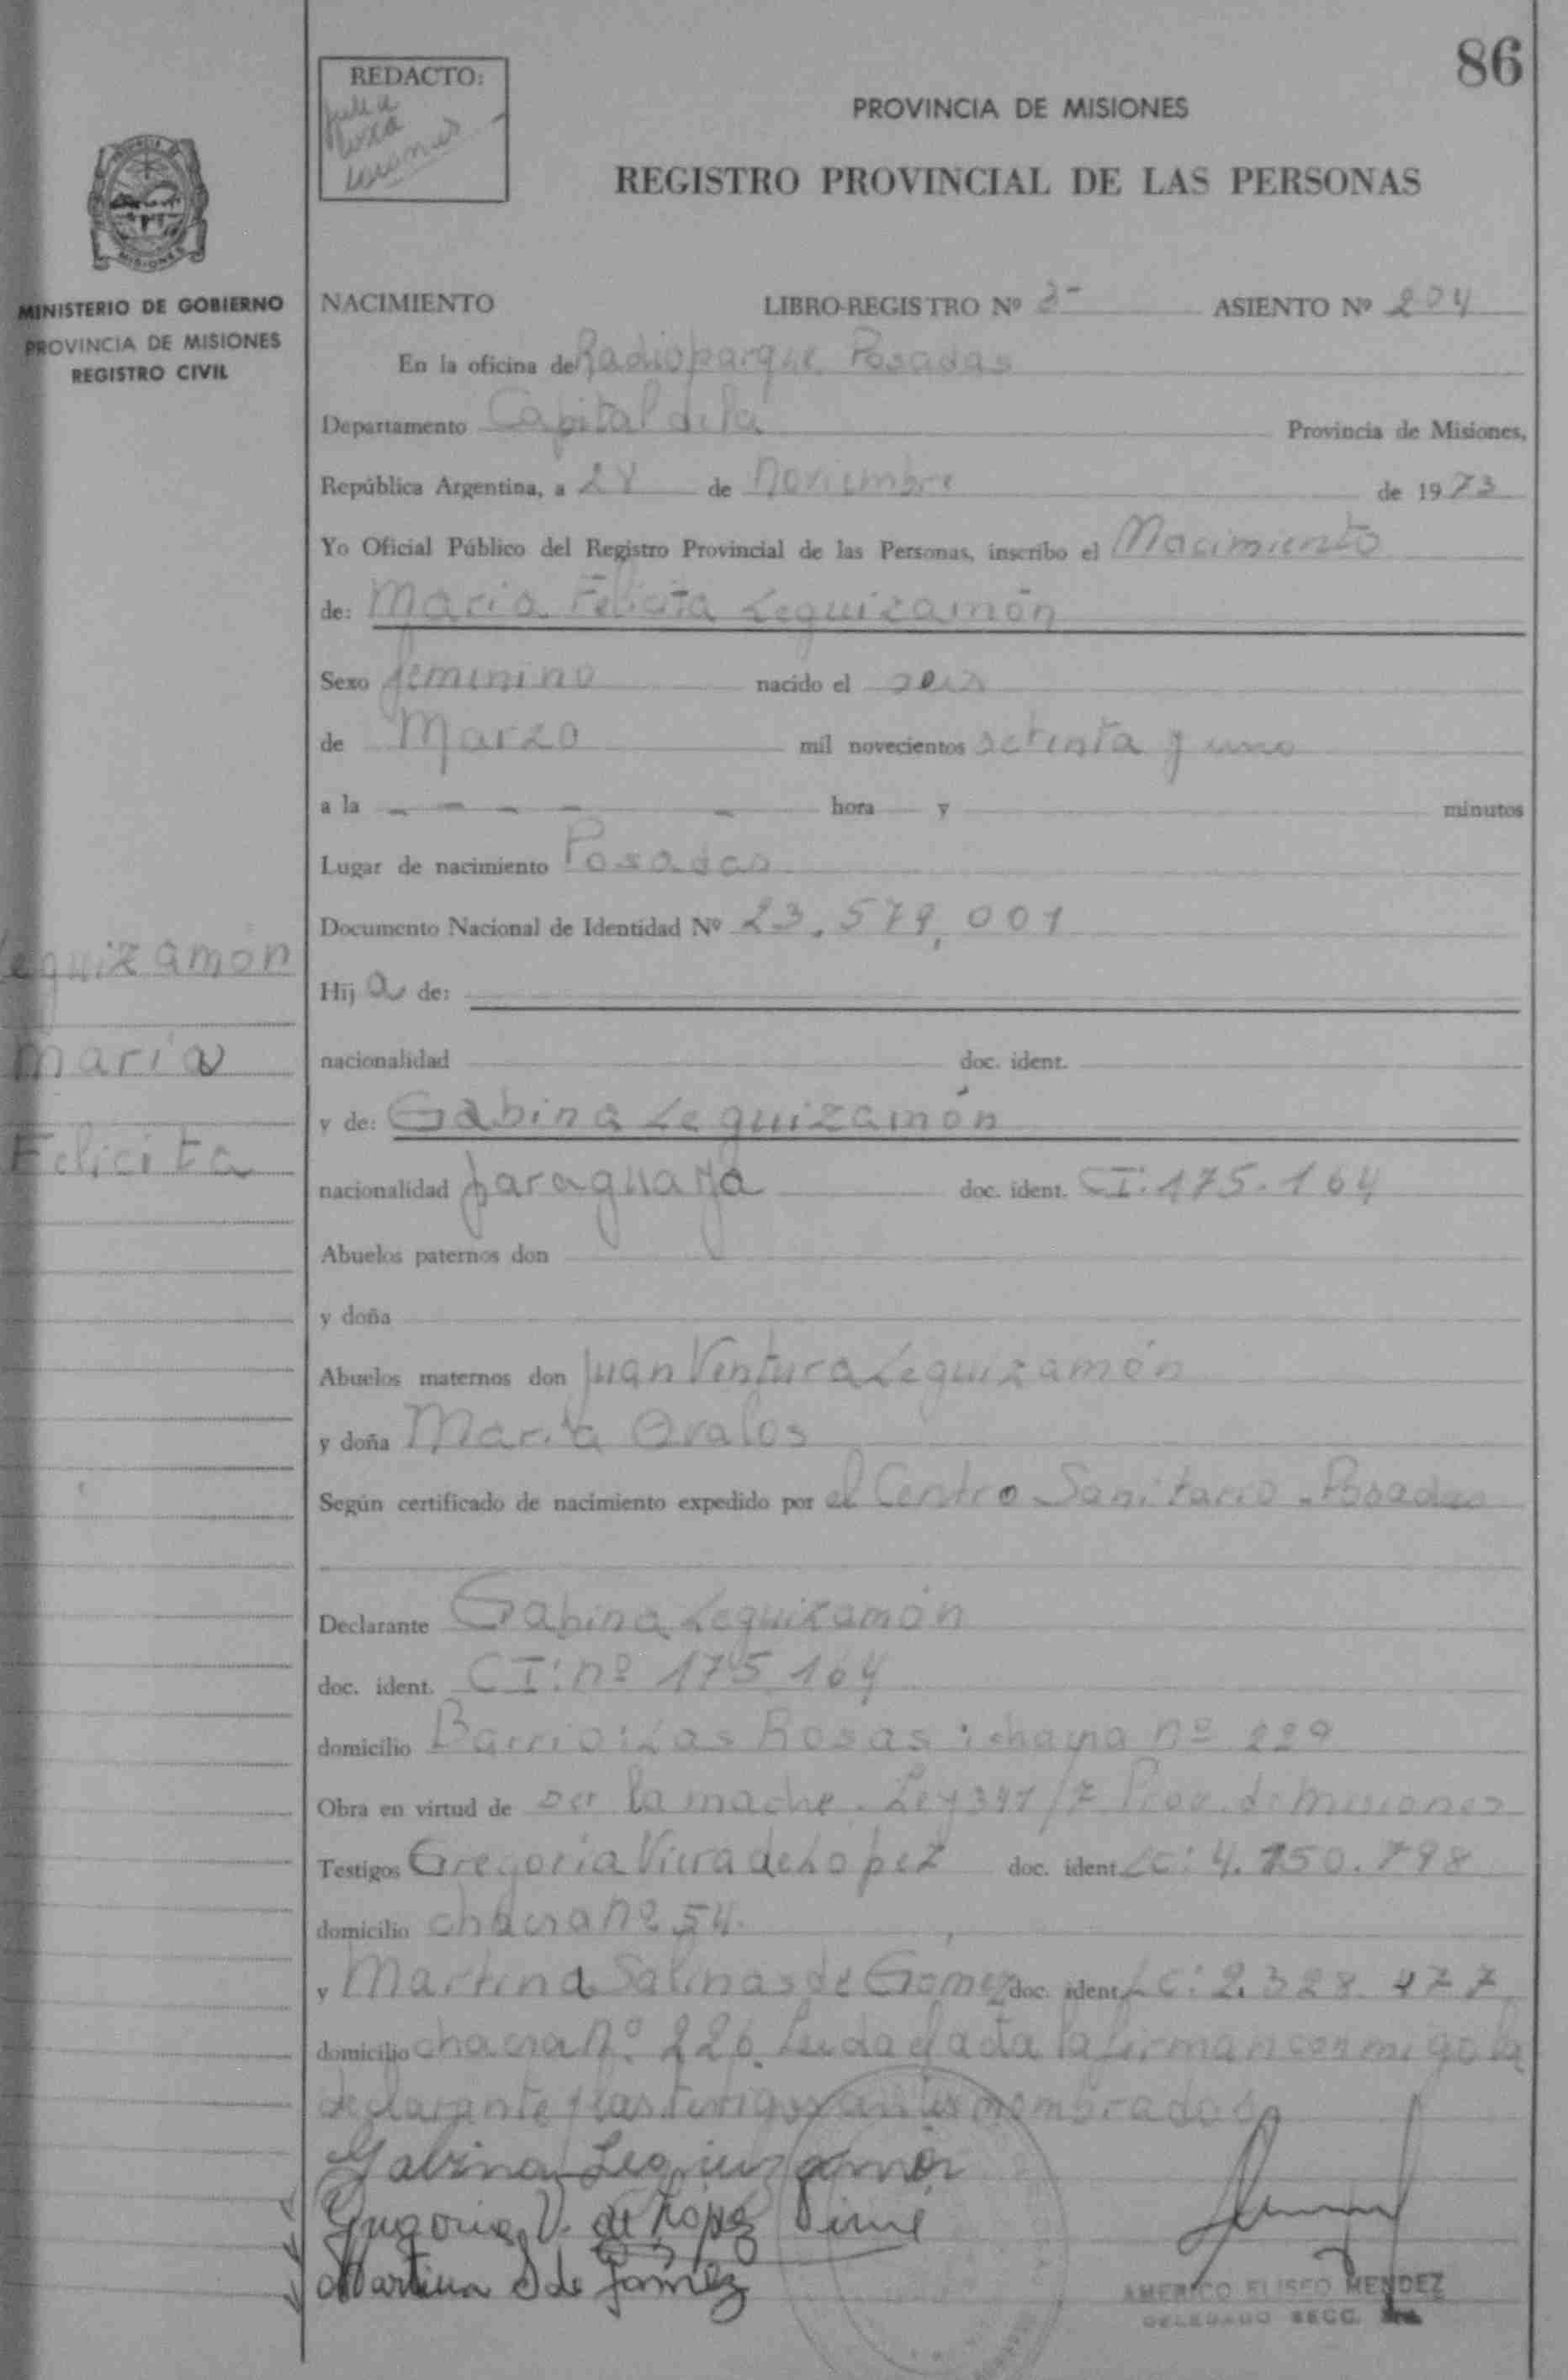 86
REDACTO:
PROVINCIA DE MISIONES
REGISTRO PROVINCIAL DE LAS PERSONAS
MISIONES
MINISTERIO DE GOBIERNO
PROVINCIA DE MISIONES
REGISTRO CIVIL
NACIMIENTO LIBRO-REGISTRO Nº 3- ASIENTO Nº 204
En la oficina de Radioparque Posadas
Departamento Capital de la Provincia de Misiones,
República Argentina, a 28 de Noviembre de 1973
Yo Oficial Público del Registro Provincial de las Personas, inscribo el Nacimiento
de: Maria Felicita Leguizamón
Sexo femenino nacido el seis
de Marzo mil novecientos setenta y uno
a la - - - - - hora y minutos
Lugar de nacimiento Posadas
Documento Nacional de Identidad Nº 23.579.001
Hija de:
nacionalidad doc. ident.
y de: Gabina Leguizamón
nacionalidad paraguaya doc. ident. CI: 175.164
Abuelos paternos don
y doña
Abuelos maternos don Juan Ventura Leguizamón
y doña Maria Ovalos
Según certificado de nacimiento expedido por el Centro Sanitario - Posadas
Declarante Gabina Leguizamón
doc. ident. CI: nº 175 164
domicilio Barrio: Las Rosas: chacra nº 229
Obra en virtud de ser la madre. Ley 341/7 Prov. de Misiones
Testigos Gregoria Viera de Lopez doc. ident LC: 4.150.798
domicilio chacra nº 54.
y Martina Salinas de Gomez doc. ident LC: 2.328.477
domicilio chacra Nº. 226. Leida el acta la firman conmigo la
declarante y las testigos antes nombrados
Leguizamón
María
Felicita
Gabina Leguizamón
Gregoria V. de López
Martina S de Gomez
AMERICO ELISEO MENDEZ
DELEGADO SECC.